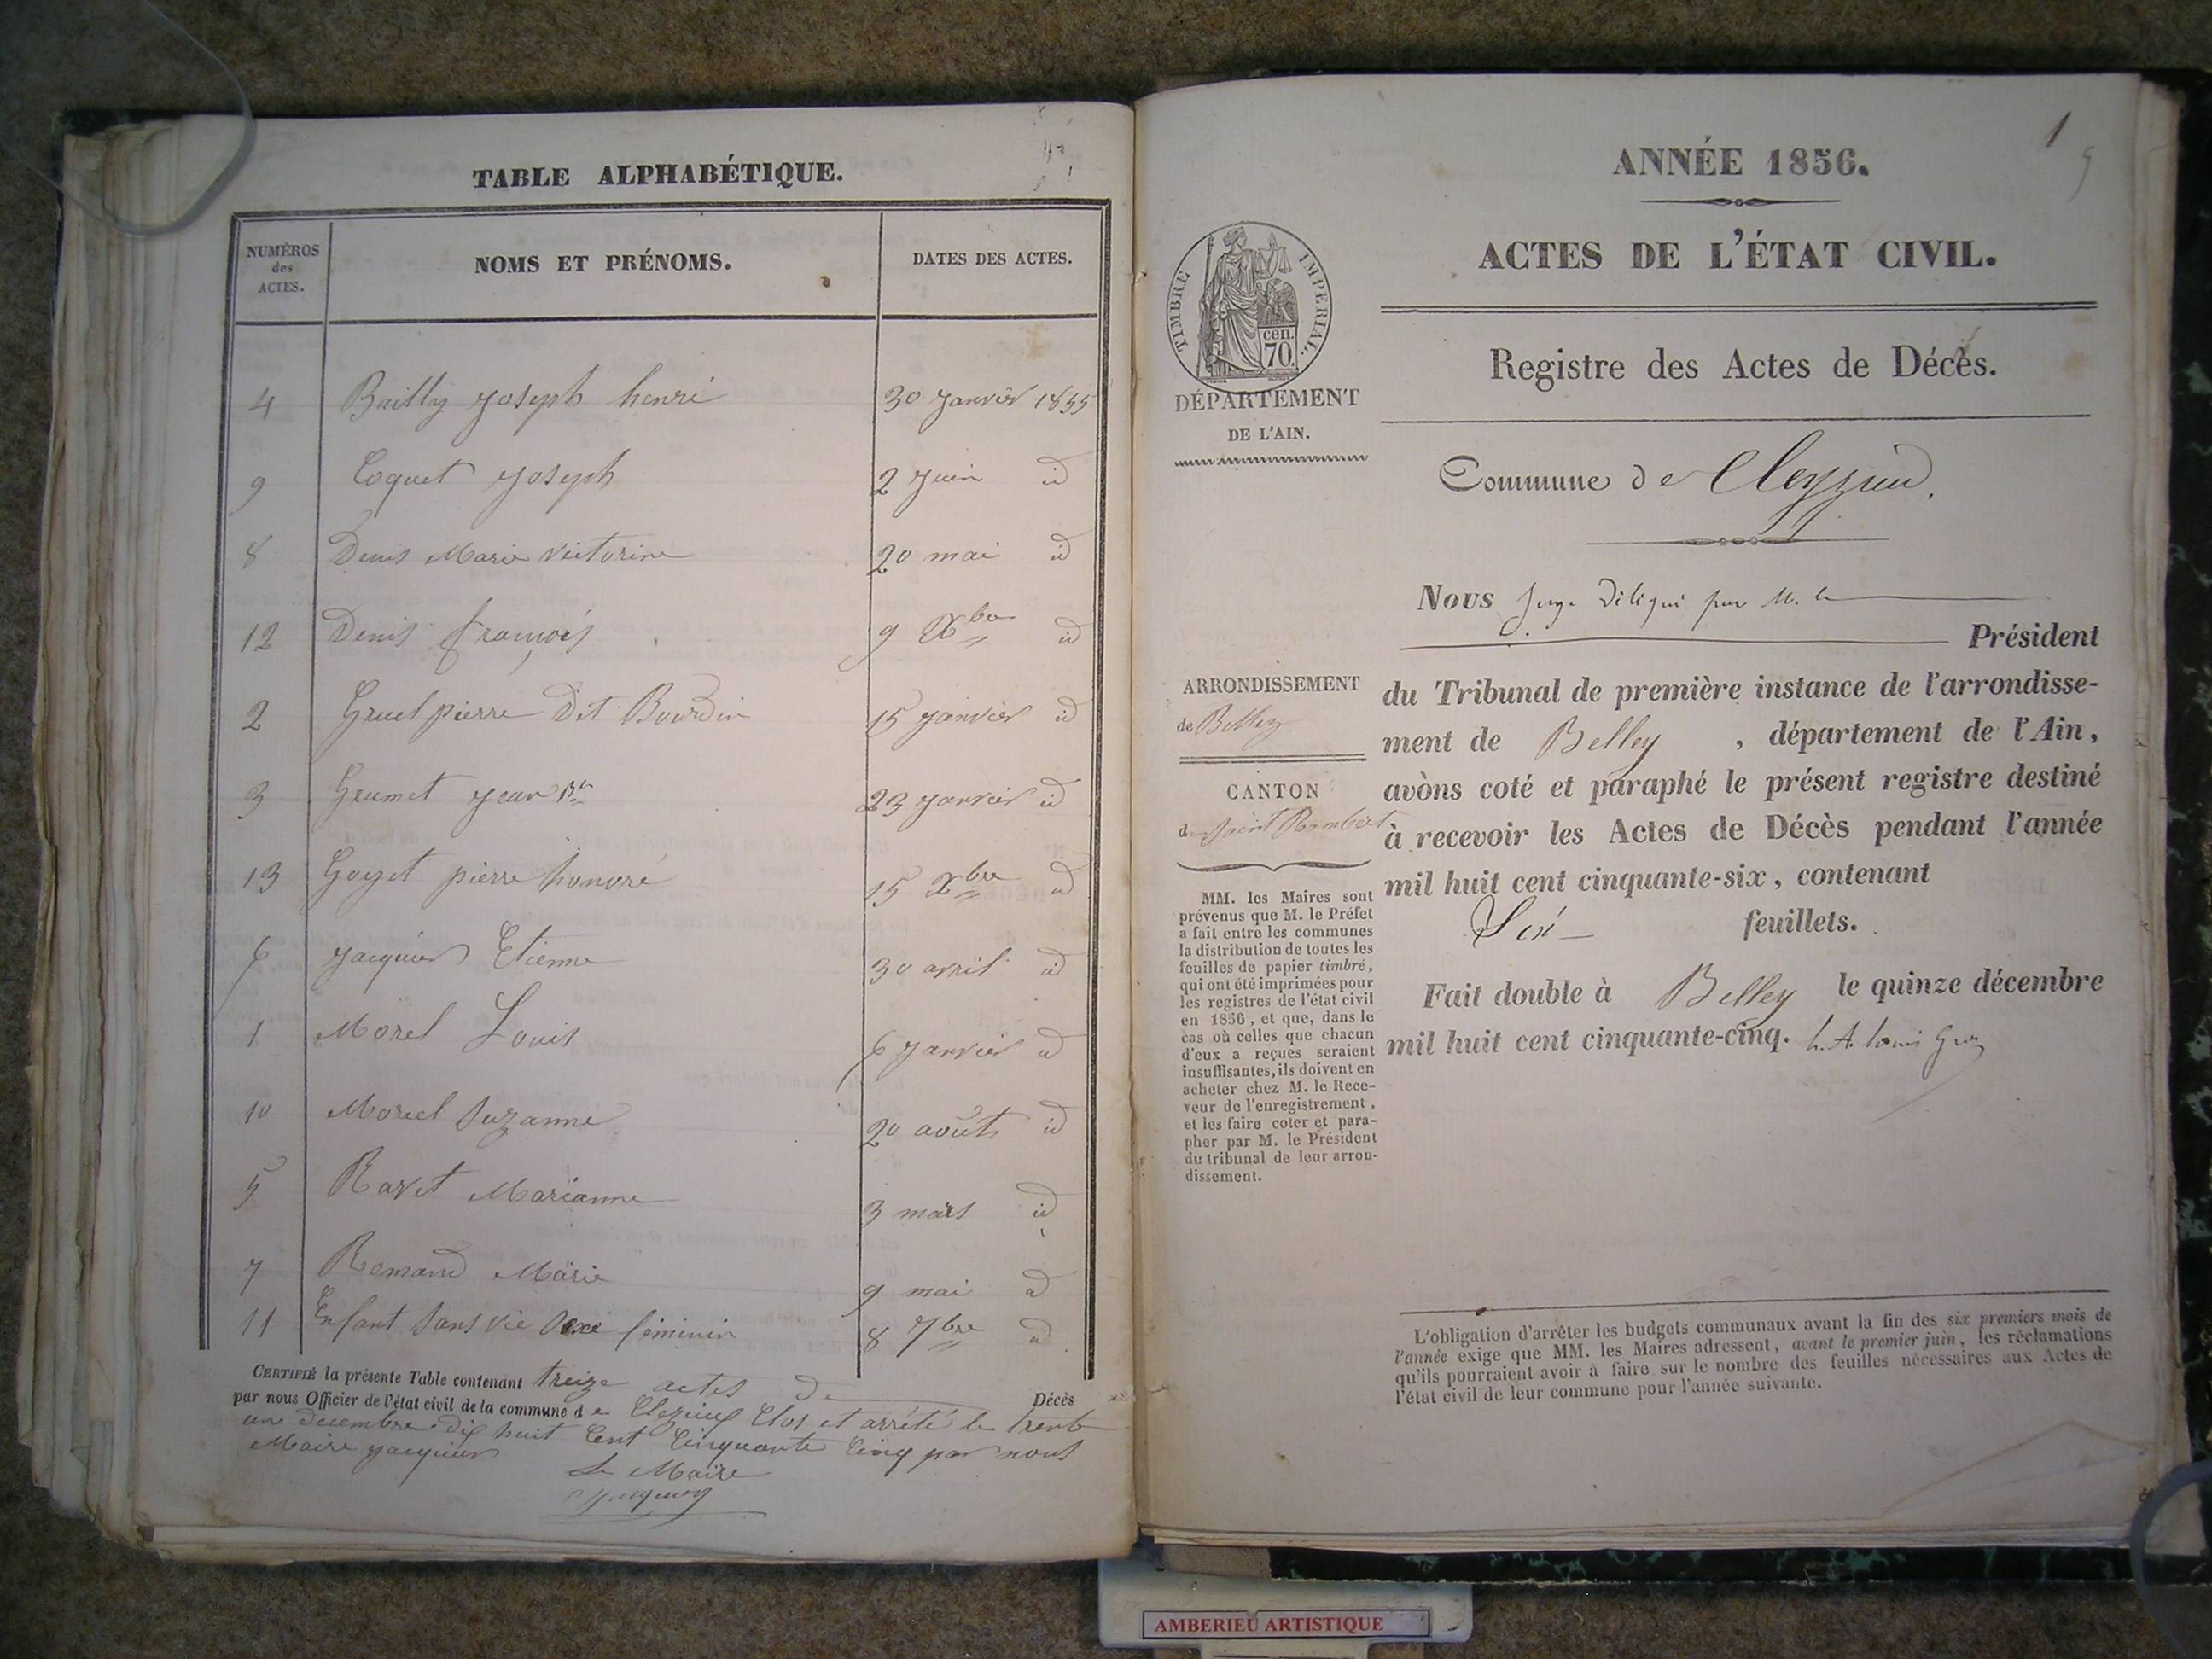 TABLE ALPHABÉTIQUE.
NUMÉROS des ACTES.
NOMS ET PRÉNOMS.
DATES DES ACTES.
4 Bailly Joseph henri 30 Janvier 1855
9 Coquet Joseph 2 Juin id
8 Denis Marie victorine 20 mai id
12 Denis françois 9 Xbre id
2 Gruel pierre dit Bourdin 15 Janvier id
3 Grumet Jean Bte 23 Janvier id
13 Goyet pierre honoré 15 Xbre id
6 Jacquier Etienne 30 avril id
1 Morel Louis 6 Janvier id
10 Morel Suzanne 20 août id
5 Ravet Marianne 3 mars id
7 Romand Marie 9 mai id
11 Enfant sans vie sexe féminin 8 7bre id
CERTIFIÉ la présente Table contenant treize actes de Décès
par nous Officier de l'état civil de la commune de Clézieu Clos et arrêté le trente
une decembre dix huit Cent Cinquante Cinq par nous
Maire Jacquier
Le Maire
Jacquier
1
9
ANNÉE 1856.
ACTES DE L'ÉTAT CIVIL.
TIMBRE IMPERIAL.
cen.
70
DÉPARTEMENT
DE L'AIN.
Registre des Actes de Décès.
Commune de Cleyzieu.
Nous Juge délégué par M. le
Président
du Tribunal de première instance de l'arrondisse-
ment de Belley, département de l'Ain,
avons coté et paraphé le présent registre destiné
à recevoir les Actes de Décès pendant l'année
mil huit cent cinquante-six, contenant
Six feuillets.
Fait double à Belley le quinze décembre
mil huit cent cinquante-cinq.
ARRONDISSEMENT
de Belley
CANTON
de Saint Rambert
MM. les Maires sont
prévenus que M. le Préfet
a fait entre les communes
la distribution de toutes les
feuilles de papier timbré,
qui ont été imprimées pour
les registres de l'état civil
en 1856, et que, dans le
cas où celles que chacun
d'eux a reçues seraient
insuffisantes, ils doivent en
acheter chez M. le Rece-
veur de l'enregistrement,
et les faire coter et para-
pher par M. le Président
du tribunal de leur arron-
dissement.
L'obligation d'arrêter les budgets communaux avant la fin des six premiers mois de
l'année exige que MM. les Maires adressent, avant le premier juin, les réclamations
qu'ils pourraient avoir à faire sur le nombre des feuilles nécessaires aux Actes de
l'état civil de leur commune pour l'année suivante.
AMBERIEU ARTISTIQUE